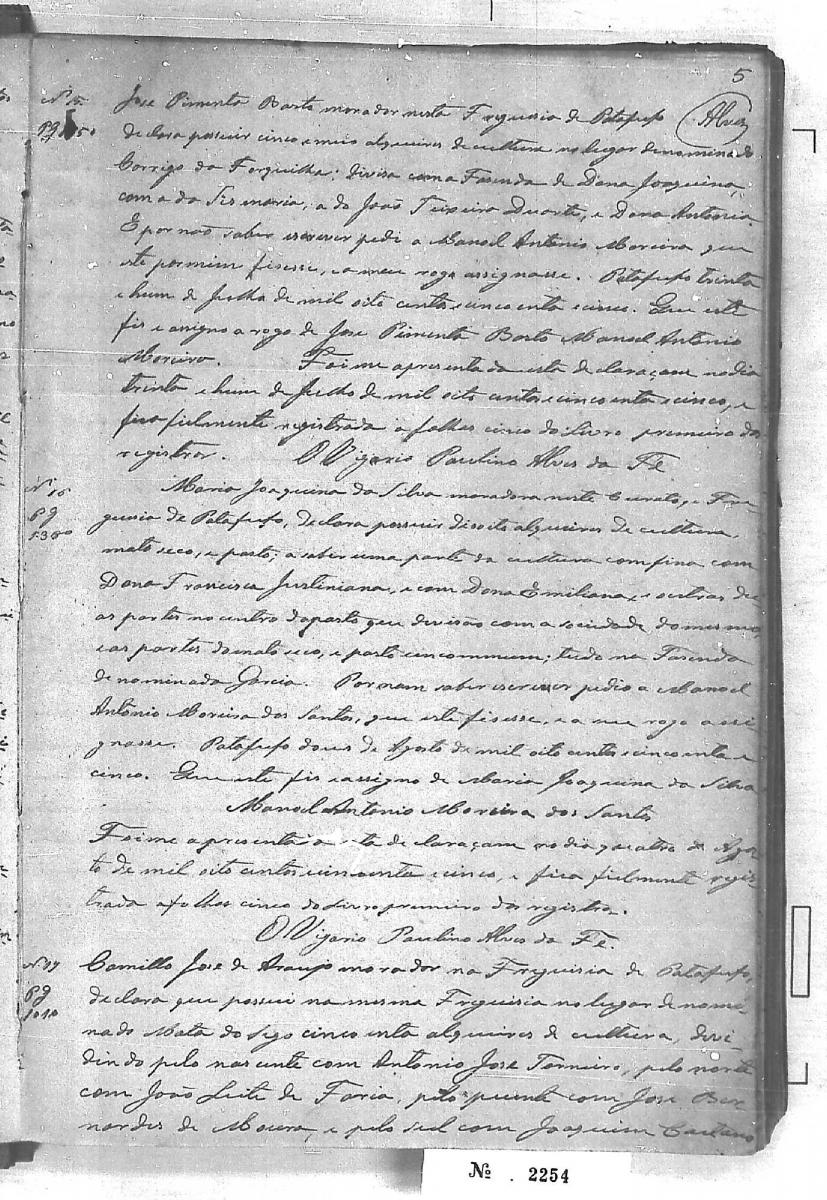 5
Alves
Nº 15
pg 850
José Pimenta Basto morador nesta Freguesia de Patafufo
declara possuir cinco e meio alqueires de cultura no lugar denominado
Corrigo da Forquilha; divisa com a Fasenda de Dona Joaquina,
com a da Sismaria, a do João Teixeira Duarte, e Dona Antonia.
E por não saber escrever pedi a Manoel Antonio Moreira que
este por mim fisesse, e a meu rogo assignasse. Patafufo trinta
e hum de Julho de mil oito centos e cincoenta e cinco. Que este
fis e assigno a rogo de Jose Pimenta Basto Manoel Antonio
Moreira. Foi me apresentada esta declaraçam no dia
trinta e hum de Julho de mil oito centos e cincoenta e cinco, e
fica fielmente registrada a folhas cinco do Livro primeiro dos
registros. O Vigario Paulino Alves da Fé.
Nº 16
pg
1380
Maria Joaquina da Silva moradora neste Curato, e Fre
guesia de Patafufo, declara possuir desoito alqueires de cultura,
mato seco, e pasto; a saber uma parte da cultura confina com
Dona Francisca Justiniana, e com Dona Emiliana, e outras du
as partes no centro do pasto que divisão com a sociedade do mesmo,
e as partes do mato seco, e pasto em commum; tudo na Fasenda
denominada Garcia. Por nam saber escrever pedio a Manoel
Antônio Moreira dos Santos, que este fisesse, e a meu rogo assi
gnasse. Patafufo dous de Agosto de mil oito centos e cincoenta e
cinco. Que este fis e assigno de Maria Joaquina da Silva
Manoel Antonio Moreira dos Santos
Foi me apresentada esta declaraçam no dia quatro de Agos
to de mil oito centos e cincoenta e cinco, e fica fielmente regis
trada a folhas cinco do Livro primeiro dos registros.
O Vigario Paulino Alves da Fé.
Nº 17
pg
1010
Camillo Jose de Araujo morador na Freguisia de Patafufo,
declara que possui na mesma Freguisia no lugar denomi
nado Mata do Sego cincoenta alqueires de cultura, devi-
dindo pelo nascente com Antonio Jose Torneiro, pelo norte
com João Leite de Faria, pelo puente com Jose Ber
nardes de Moura, e pelo sul com Joaquim Caetano
Nº . 2254